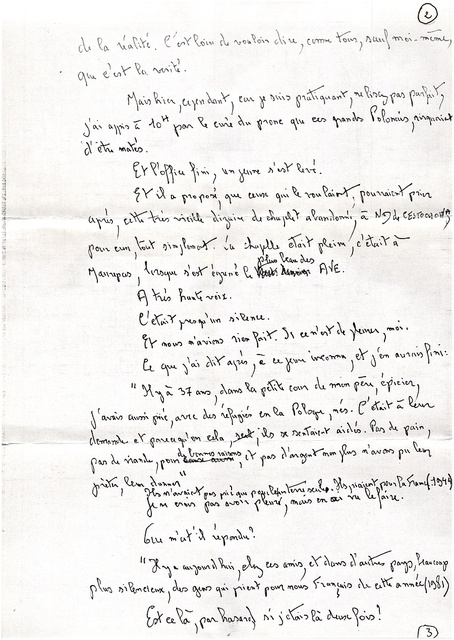 2
de la réalité. C'est loin de vouloir dire, comme tous, sauf moi-même,
que c'est la vérité.
Mais hier, cependant, car je suis pratiquant, ne lisez pas parfait,
j'ai appris à 10H par le curé du prone que ces grands Polonais, risquaient
d'être matés.
Et l'office fini, un jeune s'est levé.
Et il a proposé, que ceux qui le voulaient, pourraient prier
après, cette très vieille dizaine de chapelet abandonnée, à ND de CESTOCHOWA,
pour eux, tout simplement. La chapelle était pleine, c'était à
lorsque s'est égrené le plus beau des AVE.
A très haute voix.
C'était presqu'un silence.
Et nous n'avions rien fait. Si ce n'est de pleurer, moi.
Ce que j'ai dit après, à ce jeune inconnu, et j'en aurais fini:
"Il y a 37 ans, dans la petite cour de mon père, épicier,
j'avais aussi prié, avec des réfugiés en la Pologne, nés. C'était à leur
demande et parce qu'en cela, ils se sentaient aidés. Pas de pain,
pas de viande, pour de bonnes raisons, et pas d'argent non plus n'avons pu leur
prêter, leur donner"
Ils n'avaient pas prié que pour leur terre seule. Ils priaient pour la France (1944)
Je ne crois pas avoir pleuré, mais en ai vu le faire.
Que m'a t'il répondu?
"Il y a aujourd'hui, chez ces amis, et dans d'autres pays, beaucoup
plus silencieux, des gens qui prient pour nous Français de cette année (1981)
Est ce là, par hasard si j'étais là deux fois!
(3)